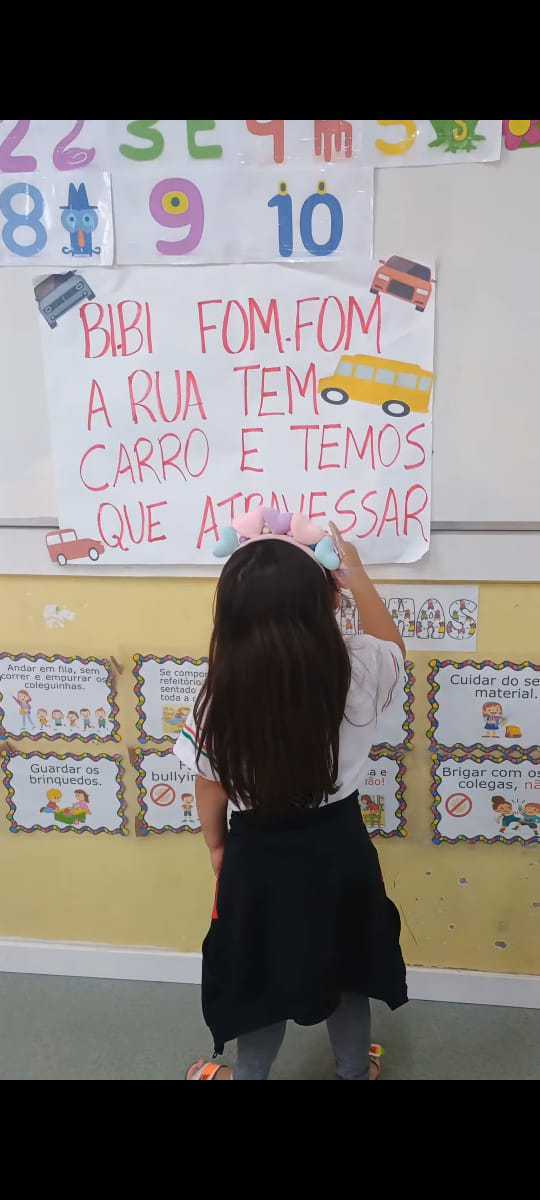 2 3 4 5
8 9 10
BI.BI FOM.FOM
A RUA TEM
CARRO E TEMOS
QUE ATRAVESSAR
Andar em fila, sem
correr e empurrar os
coleguinhas.
Se
sentado
toda a
Cuidar do
material.
Guardar os
brinquedos.
Brigar com os
colegas,